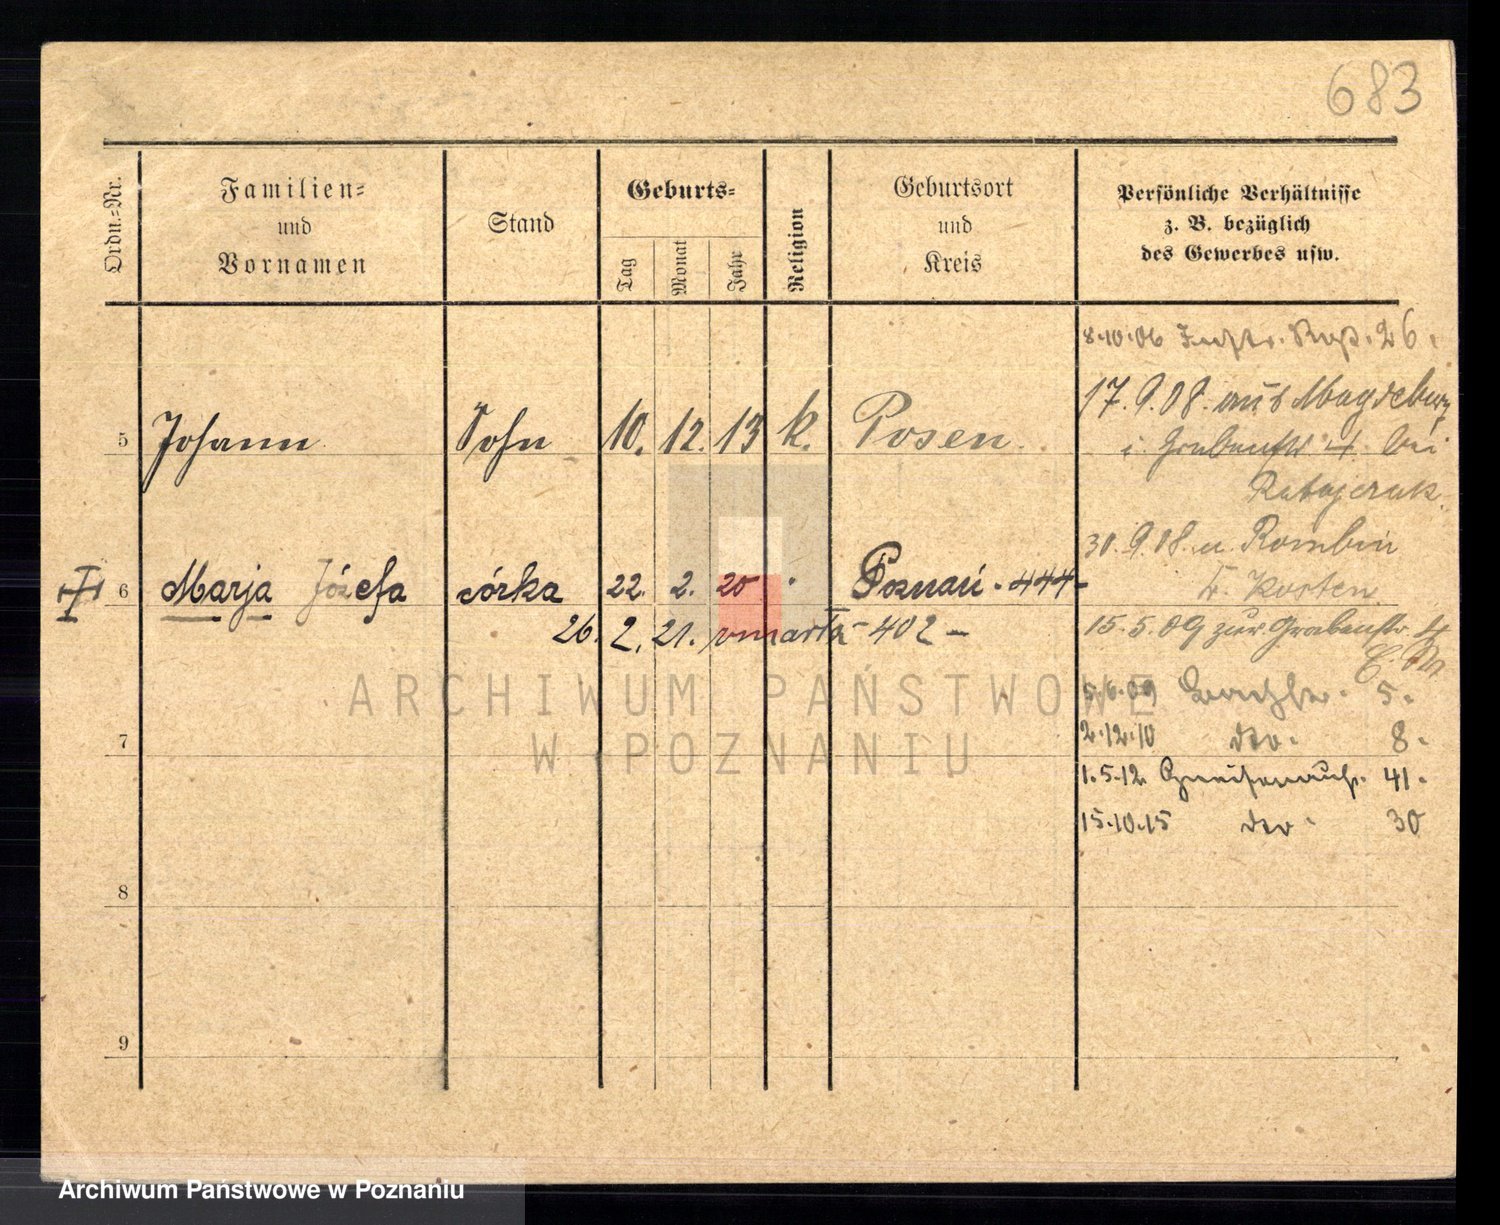 683
Ordn.=Nr.
Familien=
und
Vornamen
Stand
Geburts=
Tag
Monat
Jahr
Religion
Geburtsort
und
Kreis
Persönliche Verhältnisse
z. B. bezüglich
des Gewerbes usw.
8.10.06 26.
17.9.08. aus Magdeburg
5 Johann Sohn 10. 12. 13 k. Posen.
i. Grabenstr 4 bei
Ratajczak.
30.9.08. n. Rombin
Kr. Kosten
6 Marja Józefa córka 22. 2. 20 Poznań - 444 -
26. 2. 21. zmarła - 402 -
15.5.09 zur Grabenstr. 4
5.6.09 5.
ARCHIWUM PAŃSTWOWE
W POZNANIU
2.12.10 dto. 8.
7
1.5.12. Gneisenaustr. 41.
15.10.15 dto. 30
8
9
Archiwum Państwowe w Poznaniu